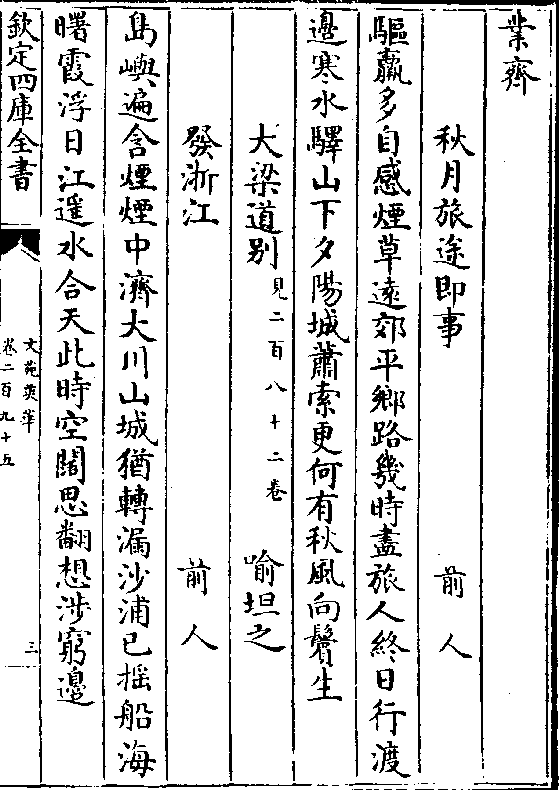 業齊
秋月旅途即事　前人
驅羸多自感煙草遠郊平鄉路幾時盡旅人終日行渡
邊寒水驛山下夕陽城蕭索更何有秋風向鬢生
大梁道别見二百八十二卷　喻坦之
發浙江　前人
島嶼遍含煙煙中濟大川山城猶轉漏沙浦已摇船海
曙霞浮日江遥水合天此時空闊思翻想涉窮邊
欽定四庫全書
文苑英華
卷二百九十五
三